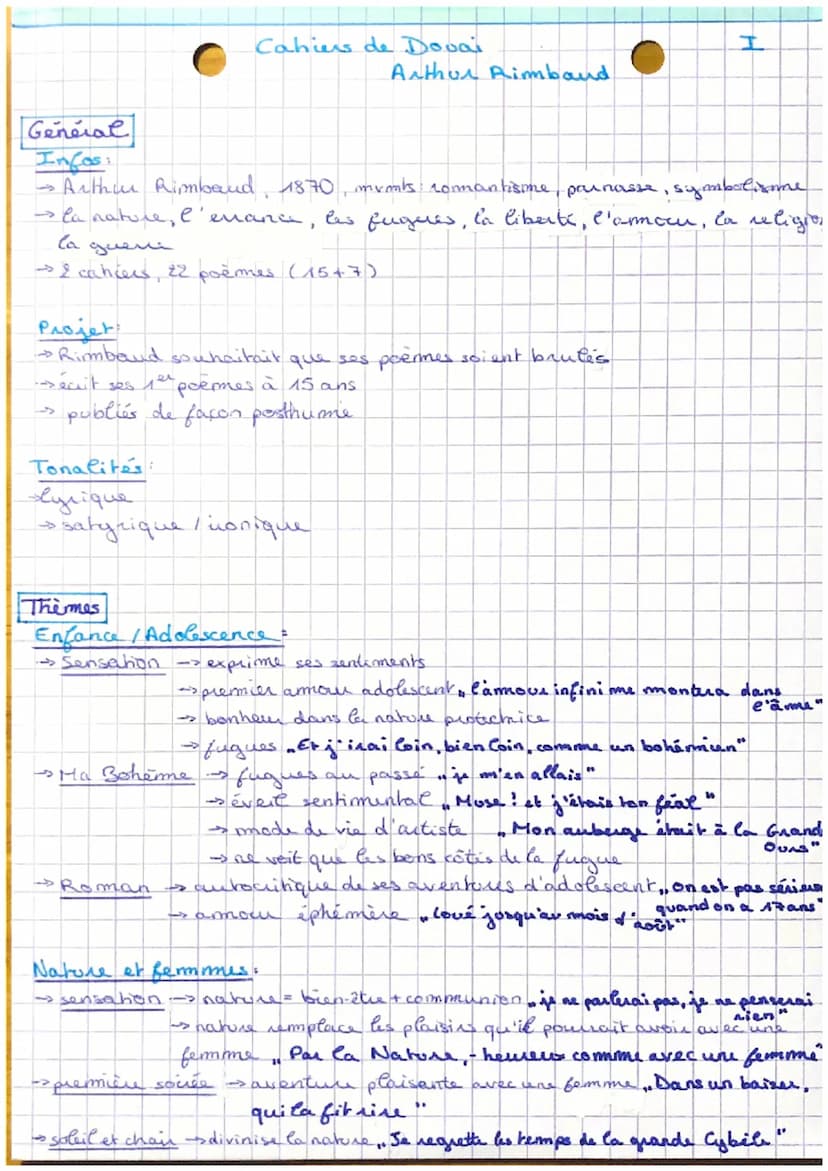 Cahiers de Douai
I
Arthur Rimbaud
Général
Infos:
→ Arthur Rimbaud, 1870, mvmts: romantisme, parnasse, symbolisme
→ la nature, l'errance, les fugues, la liberté, l'amour, la religion,
la guerre
→ 2 cahiers, 22 poèmes (15+7)
Projet:
→ Rimbaud souhaitait que ses poèmes soient brulés
→ écrit ses 1er poèmes à 15 ans
→ publiés de façon posthume
Tonalités:
→ lyrique
→ satyrique / ironique
Thèmes
Enfance / Adolescence:
→ Sensation → exprime ses sentiments
→ premier amour adolescent „ l'amour infini me montera dans
l'âme"
→ bonheur dans la nature protectrice
→ fugues „Et j'irai loin, bien loin, comme un bohémien"
→ Ma Bohème → fugues au passé „ je m'en allais"
→ éveil sentimental „ Muse! et j'étais ton féal"
→ mode de vie d'artiste „ Mon auberge était à la Grand
Ours"
→ ne voit que les bons côtés de la fugue
→ Roman → autocritique de ses aventures d'adolescent „ on est pas sérieux
quand on a 17 ans"
→ amour éphémère „ loué jusqu'au mois d'août"
Nature et femmes:
→ sensation → nature = bien-être + communion „ je ne parlerai pas, je ne penserai
rien"
→ nature remplace les plaisirs qu'il pourrait avoir avec une
femme „ Par la Nature, - heureux comme avec une femme"
→ première soirée → aventure plaisante avec une femme „ Dans un baiser,
qui la fit rire"
→ soleil et chair → divinise la nature „ Je regrette les temps de la grande Cybèle"